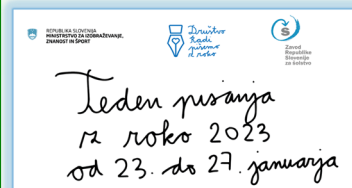 REPUBLIKA SLOVENIJA
MINISTRSTVO ZA IZOBRAŽEVANJE,
ZNANOST IN ŠPORT
Društvo
Radi
pišemo
z roko
Zavod
Republike
Slovenije
za šolstvo
Teden pisanja
z roko 2023
od 23. do 27. januarja